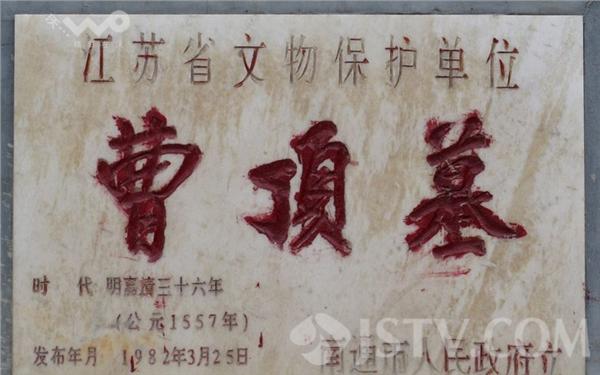 江苏省文物保护单位
曹顶墓
时 代 明嘉靖三十六年
(公元1557年)
发布年月 1982年3月25日
南通市人民政府立
JSTV.COM